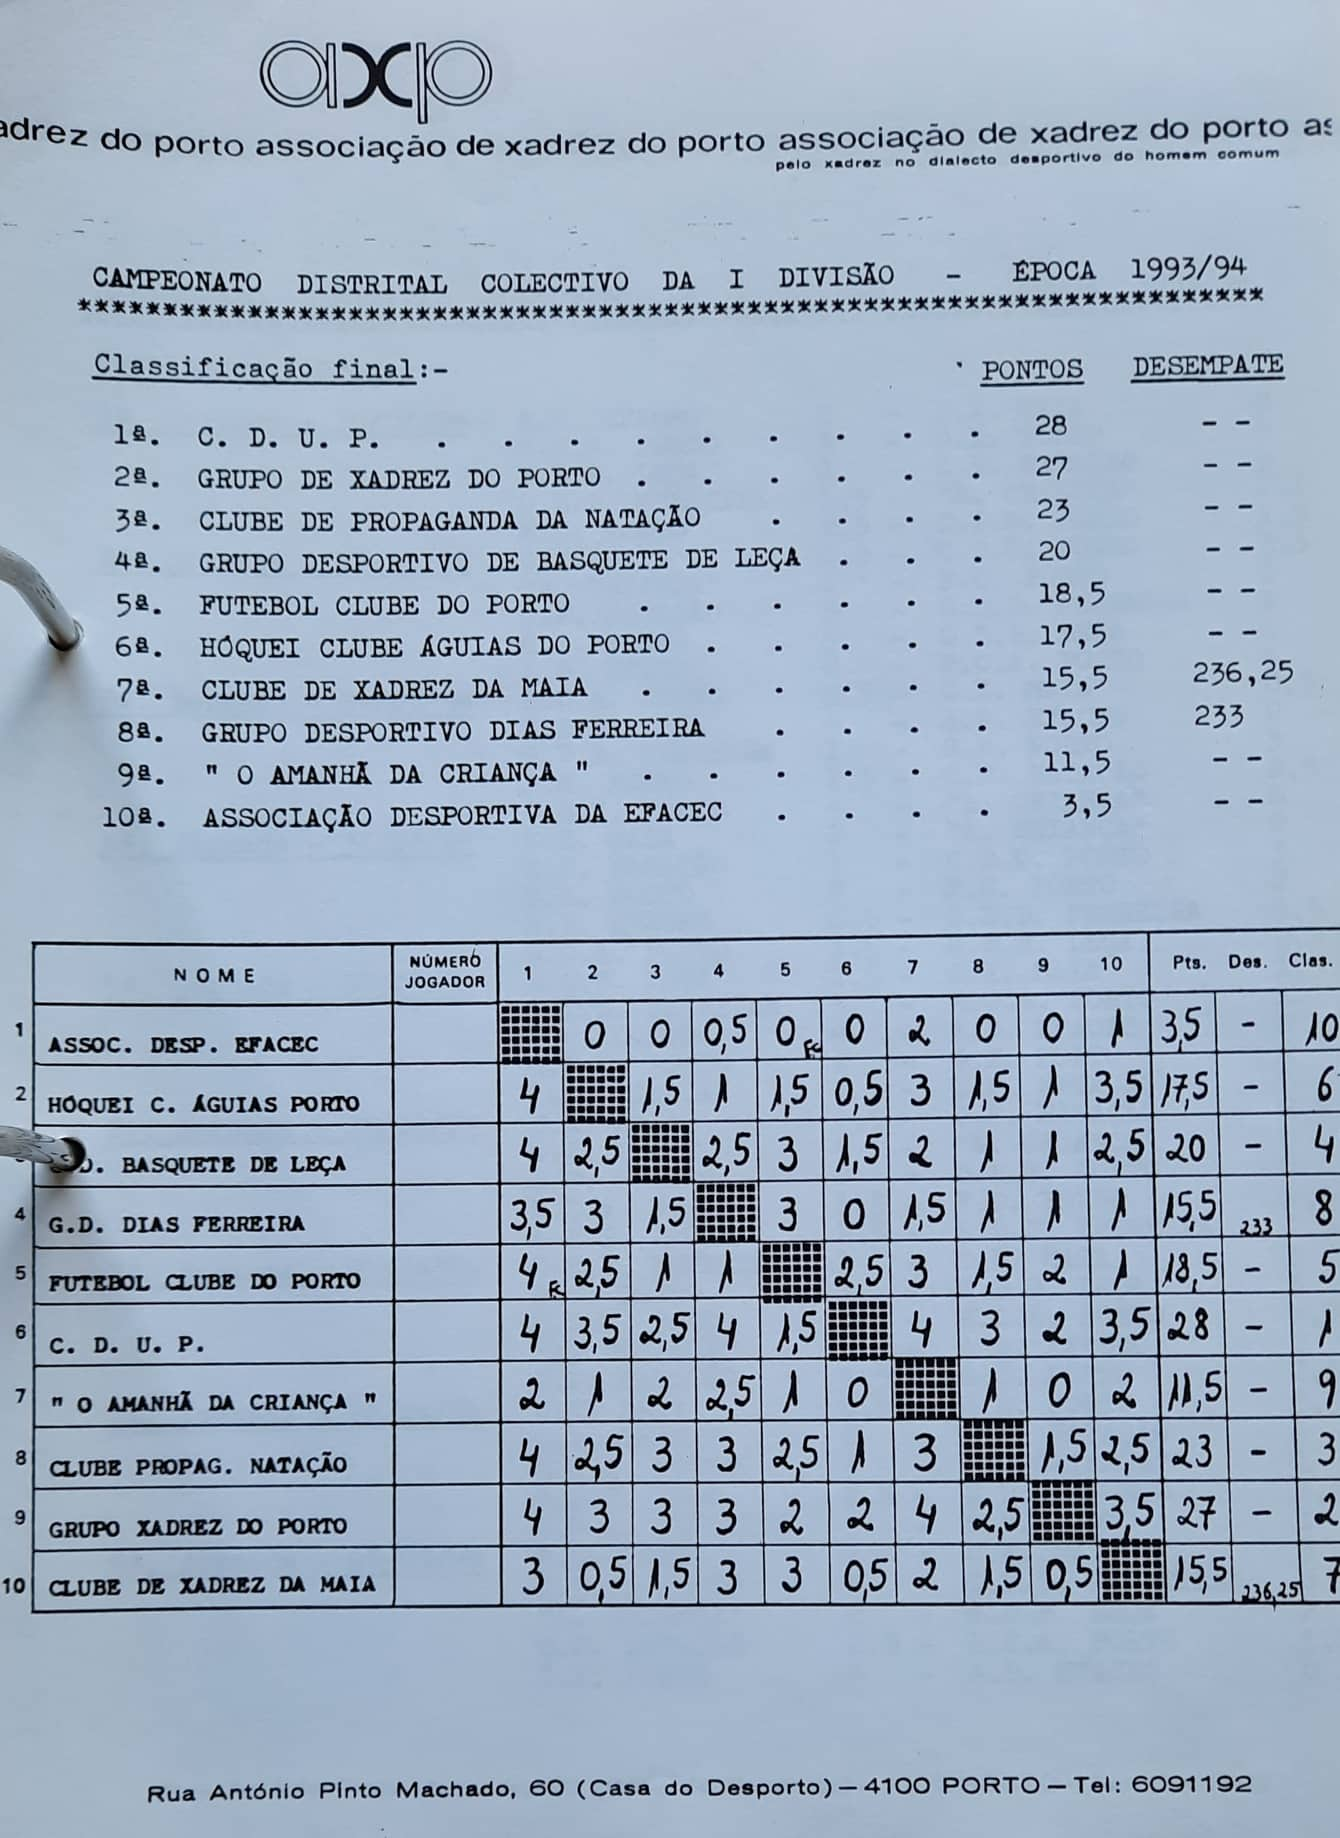 axp
adrez do porto associação de xadrez do porto associação de xadrez do porto as
pelo xadrez no dialecto desportivo do homem comum
CAMPEONATO DISTRITAL COLECTIVO DA I DIVISÃO - ÉPOCA 1993/94
**********************************************************************
Classificação final:- PONTOS DESEMPATE
1ª. C. D. U. P. . . . . . . . . . 28 - -
2ª. GRUPO DE XADREZ DO PORTO . . . . . . 27 - -
3ª. CLUBE DE PROPAGANDA DA NATAÇÃO . . . . 23 - -
4ª. GRUPO DESPORTIVO DE BASQUETE DE LEÇA . . . 20 - -
5ª. FUTEBOL CLUBE DO PORTO . . . . . . 18,5 - -
6ª. HÓQUEI CLUBE ÁGUIAS DO PORTO . . . . . 17,5 - -
7ª. CLUBE DE XADREZ DA MAIA . . . . . . 15,5 236,25
8ª. GRUPO DESPORTIVO DIAS FERREIRA . . . . 15,5 233
9ª. " O AMANHÃ DA CRIANÇA " . . . . . . 11,5 - -
10ª. ASSOCIAÇÃO DESPORTIVA DA EFACEC . . . . 3,5 - -
NOME NÚMERO JOGADOR 1 2 3 4 5 6 7 8 9 10 Pts. Des. Clas.
1 ASSOC. DESP. EFACEC 0 0 0,5 0 Fc 0 2 0 0 1 3,5 - 10
2 HÓQUEI C. ÁGUIAS PORTO 4 1,5 1 1,5 0,5 3 1,5 1 3,5 17,5 - 6
D. BASQUETE DE LEÇA 4 2,5 2,5 3 1,5 2 1 1 2,5 20 - 4
4 G.D. DIAS FERREIRA 3,5 3 1,5 3 0 1,5 1 1 1 15,5 233 8
5 FUTEBOL CLUBE DO PORTO 4 Fc 2,5 1 1 2,5 3 1,5 2 1 18,5 - 5
6 C. D. U. P. 4 3,5 2,5 4 1,5 4 3 2 3,5 28 - 1
7 " O AMANHÃ DA CRIANÇA " 2 1 2 2,5 1 0 1 0 2 11,5 - 9
8 CLUBE PROPAG. NATAÇÃO 4 2,5 3 3 2,5 1 3 1,5 2,5 23 - 3
9 GRUPO XADREZ DO PORTO 4 3 3 3 2 2 4 2,5 3,5 27 - 2
10 CLUBE DE XADREZ DA MAIA 3 0,5 1,5 3 3 0,5 2 1,5 0,5 15,5 236,25 7
Rua António Pinto Machado, 60 (Casa do Desporto) — 4100 PORTO — Tel: 6091192